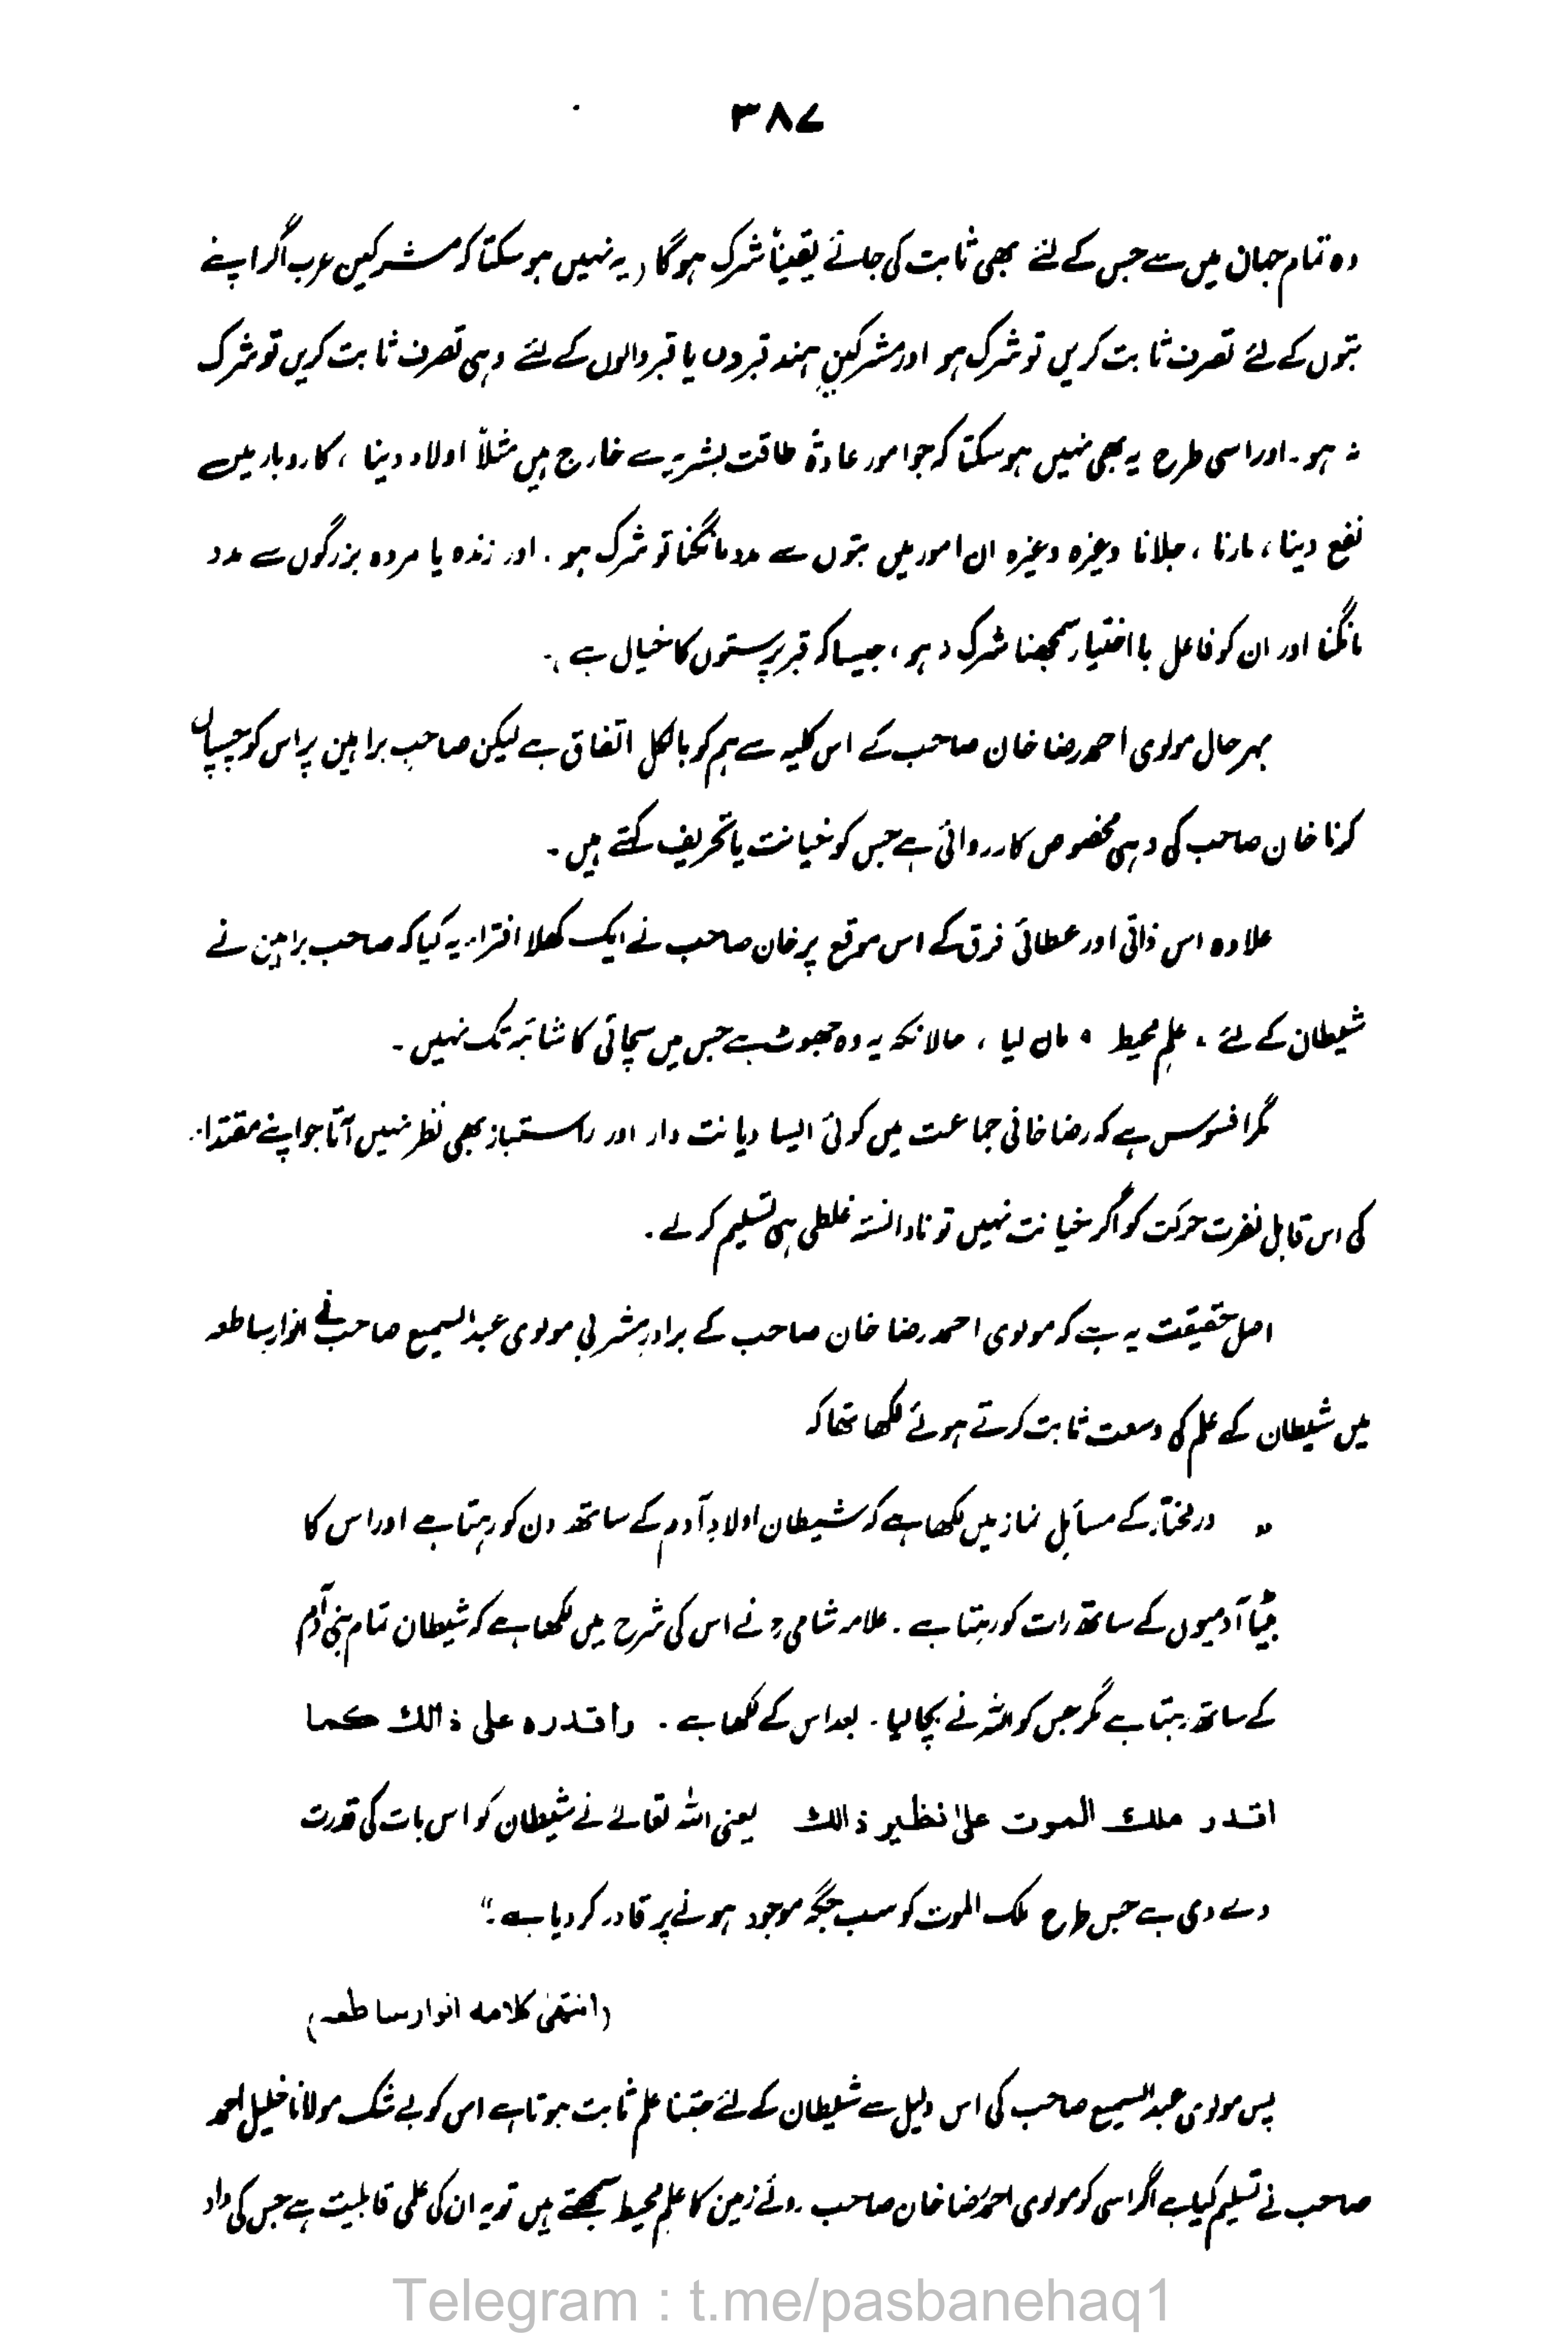 ۳۸۷
وہ تمام جہان میں سے جس کے لئے بھی ثابت کی جائے یقیناً شرک ہوگا (یہ نہیں ہوسکتا کہ مشرکین عرب اگر اپنے
بتوں کے لئے تصرف ثابت کریں تو شرک ہو اور مشرکینِ ہند قبروں یا قبر والوں کے لئے وہی تصرف ثابت کریں تو شرک
نہ ہو۔ اور اسی طرح یہ بھی نہیں ہوسکتا کہ جو امور عادۃً طاقت بشریہ سے خارج ہیں مثلاً اولاد دینا ، کاروبار میں
نفع دینا ، مارنا ، جلانا وغیرہ وغیرہ ان امور میں بتوں سے مدد مانگنا تو شرک ہو ۔ اور زندہ یا مردہ بزرگوں سے مدد
مانگنا اور ان کو فاعل با اختیار سمجھنا شرک نہ ہو ، جیسا کہ قبر پرستوں کا خیال ہے )۔
بہر حال مولوی احمد رضا خان صاحب کے اس کلیہ سے ہم کو بالکل اتفاق ہے لیکن صاحبِ براہین پر اس کو چسپاں
کرنا خان صاحب کی وہی مخصوص کارروائی ہے جس کو خیانت یا تحریف کہتے ہیں ۔
علاوہ اس ذاتی اور عطائی فرق کے اس موقع پر خان صاحب نے ایک کھلا افتراء یہ کیا کہ صاحب براہین نے
شیطان کے لئے " علمِ محیط " مان لیا ، حالانکہ یہ وہ جھوٹ ہے جس میں سچائی کا شائبہ تک نہیں ۔
مگر افسوس ہے کہ رضا خانی جماعت میں کوئی ایسا دیانت دار اور راستباز بھی نظر نہیں آتا جو اپنے مقتداء
کی اس قابلِ نفرت حرکت کو اگر خیانت نہیں تو نادانستہ غلطی ہی تسلیم کرلے ۔
اصل حقیقت یہ ہے کہ مولوی احمد رضا خان صاحب کے برادرِ مشربی مولوی عبدالسمیع صاحب نے انوار ساطعہ
میں شیطان کے علم کی وسعت ثابت کرتے ہوئے لکھا تھا کہ
" درمختار کے مسائلِ نماز میں لکھا ہے کہ شیطان اولادِ آدم کے ساتھ دن کو رہتا ہے اور اس کا
بیٹا آدمیوں کے ساتھ رات کو رہتا ہے ۔ علامہ شامیؒ نے اس کی شرح میں لکھا ہے کہ شیطان تمام بنی آدم
کے ساتھ رہتا ہے مگر جس کو اللہ نے بچالیا ۔ بعد اس کے لکھا ہے ۔ واقدرہ علی ذالک کما
اقدر ملک الموت علیٰ نظیر ذالک یعنی اللہ تعالےٰ نے شیطان کو اس بات کی قدرت
دے دی ہے جس طرح ملک الموت کو سب جگہ موجود ہونے پر قادر کردیا ہے ۔"
(انتہیٰ کلامہ انوار ساطعہ)
پس مولوی عبدالسمیع صاحب کی اس دلیل سے شیطان کے لئے جتنا علم ثابت ہوتا ہے اس کو بے شک مولانا خلیل احمد
صاحب نے تسلیم کیا ہے اگر اسی کو مولوی احمد رضا خان صاحب روئے زمین کا علمِ محیط سمجھتے ہیں تو یہ ان کی علمی قابلیت ہے جس کی داد
Telegram : t.me/pasbanehaq1